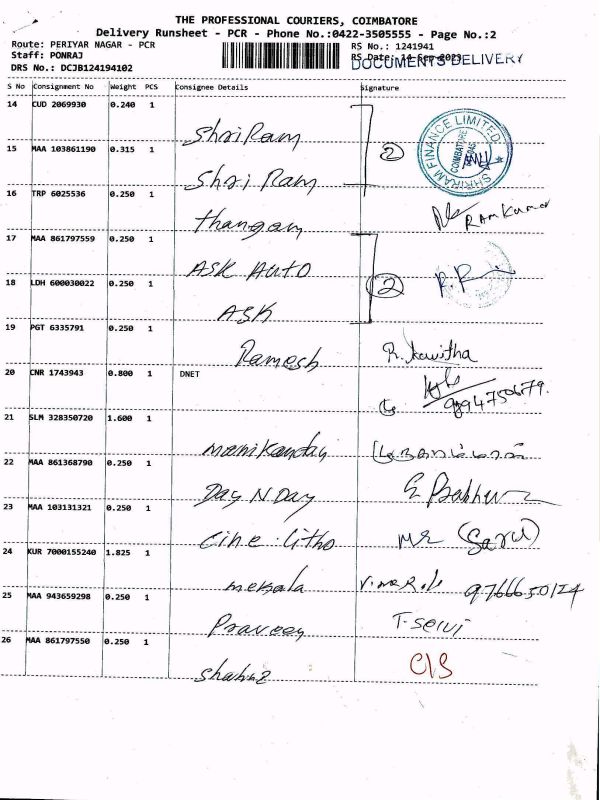 THE PROFESSIONAL COURIERS, COIMBATORE
Delivery Runsheet - PCR - Phone No.:0422-3505555 - Page No.:2
Route: PERIYAR NAGAR - PCR RS No.: 1241941
Staff: PONRAJ RS Date: 14 Sep 2023 DOCUMENTS DELIVERY
DRS No.: DCJB124194102
S No Consignment No Weight PCS Consignee Details Signature
14 CUD 2069930 0.240 1 Shri Ram
SHRIRAM FINANCE LIMITED COIMBATORE
15 MAA 103861190 0.315 1 Shri Ram 2
16 TRP 6025536 0.250 1 Thangam RAMKumar
17 MAA 861797559 0.250 1 ASK Auto
18 LDH 600030022 0.250 1 ASK 2 R.R
19 PGT 6335791 0.250 1 Ramesh R. Kavitha
20 CNR 1743943 0.800 1 DNET
21 SLM 328350720 1.600 1 manikandan
22 MAA 861368790 0.250 1 Day N Day
23 MAA 103131321 0.250 1 Cine Litho (Saru)
24 KUR 7000155240 1.825 1 mekala
25 MAA 943659298 0.250 1 Praveen T. Selvi
26 MAA 861797550 0.250 1 C/S